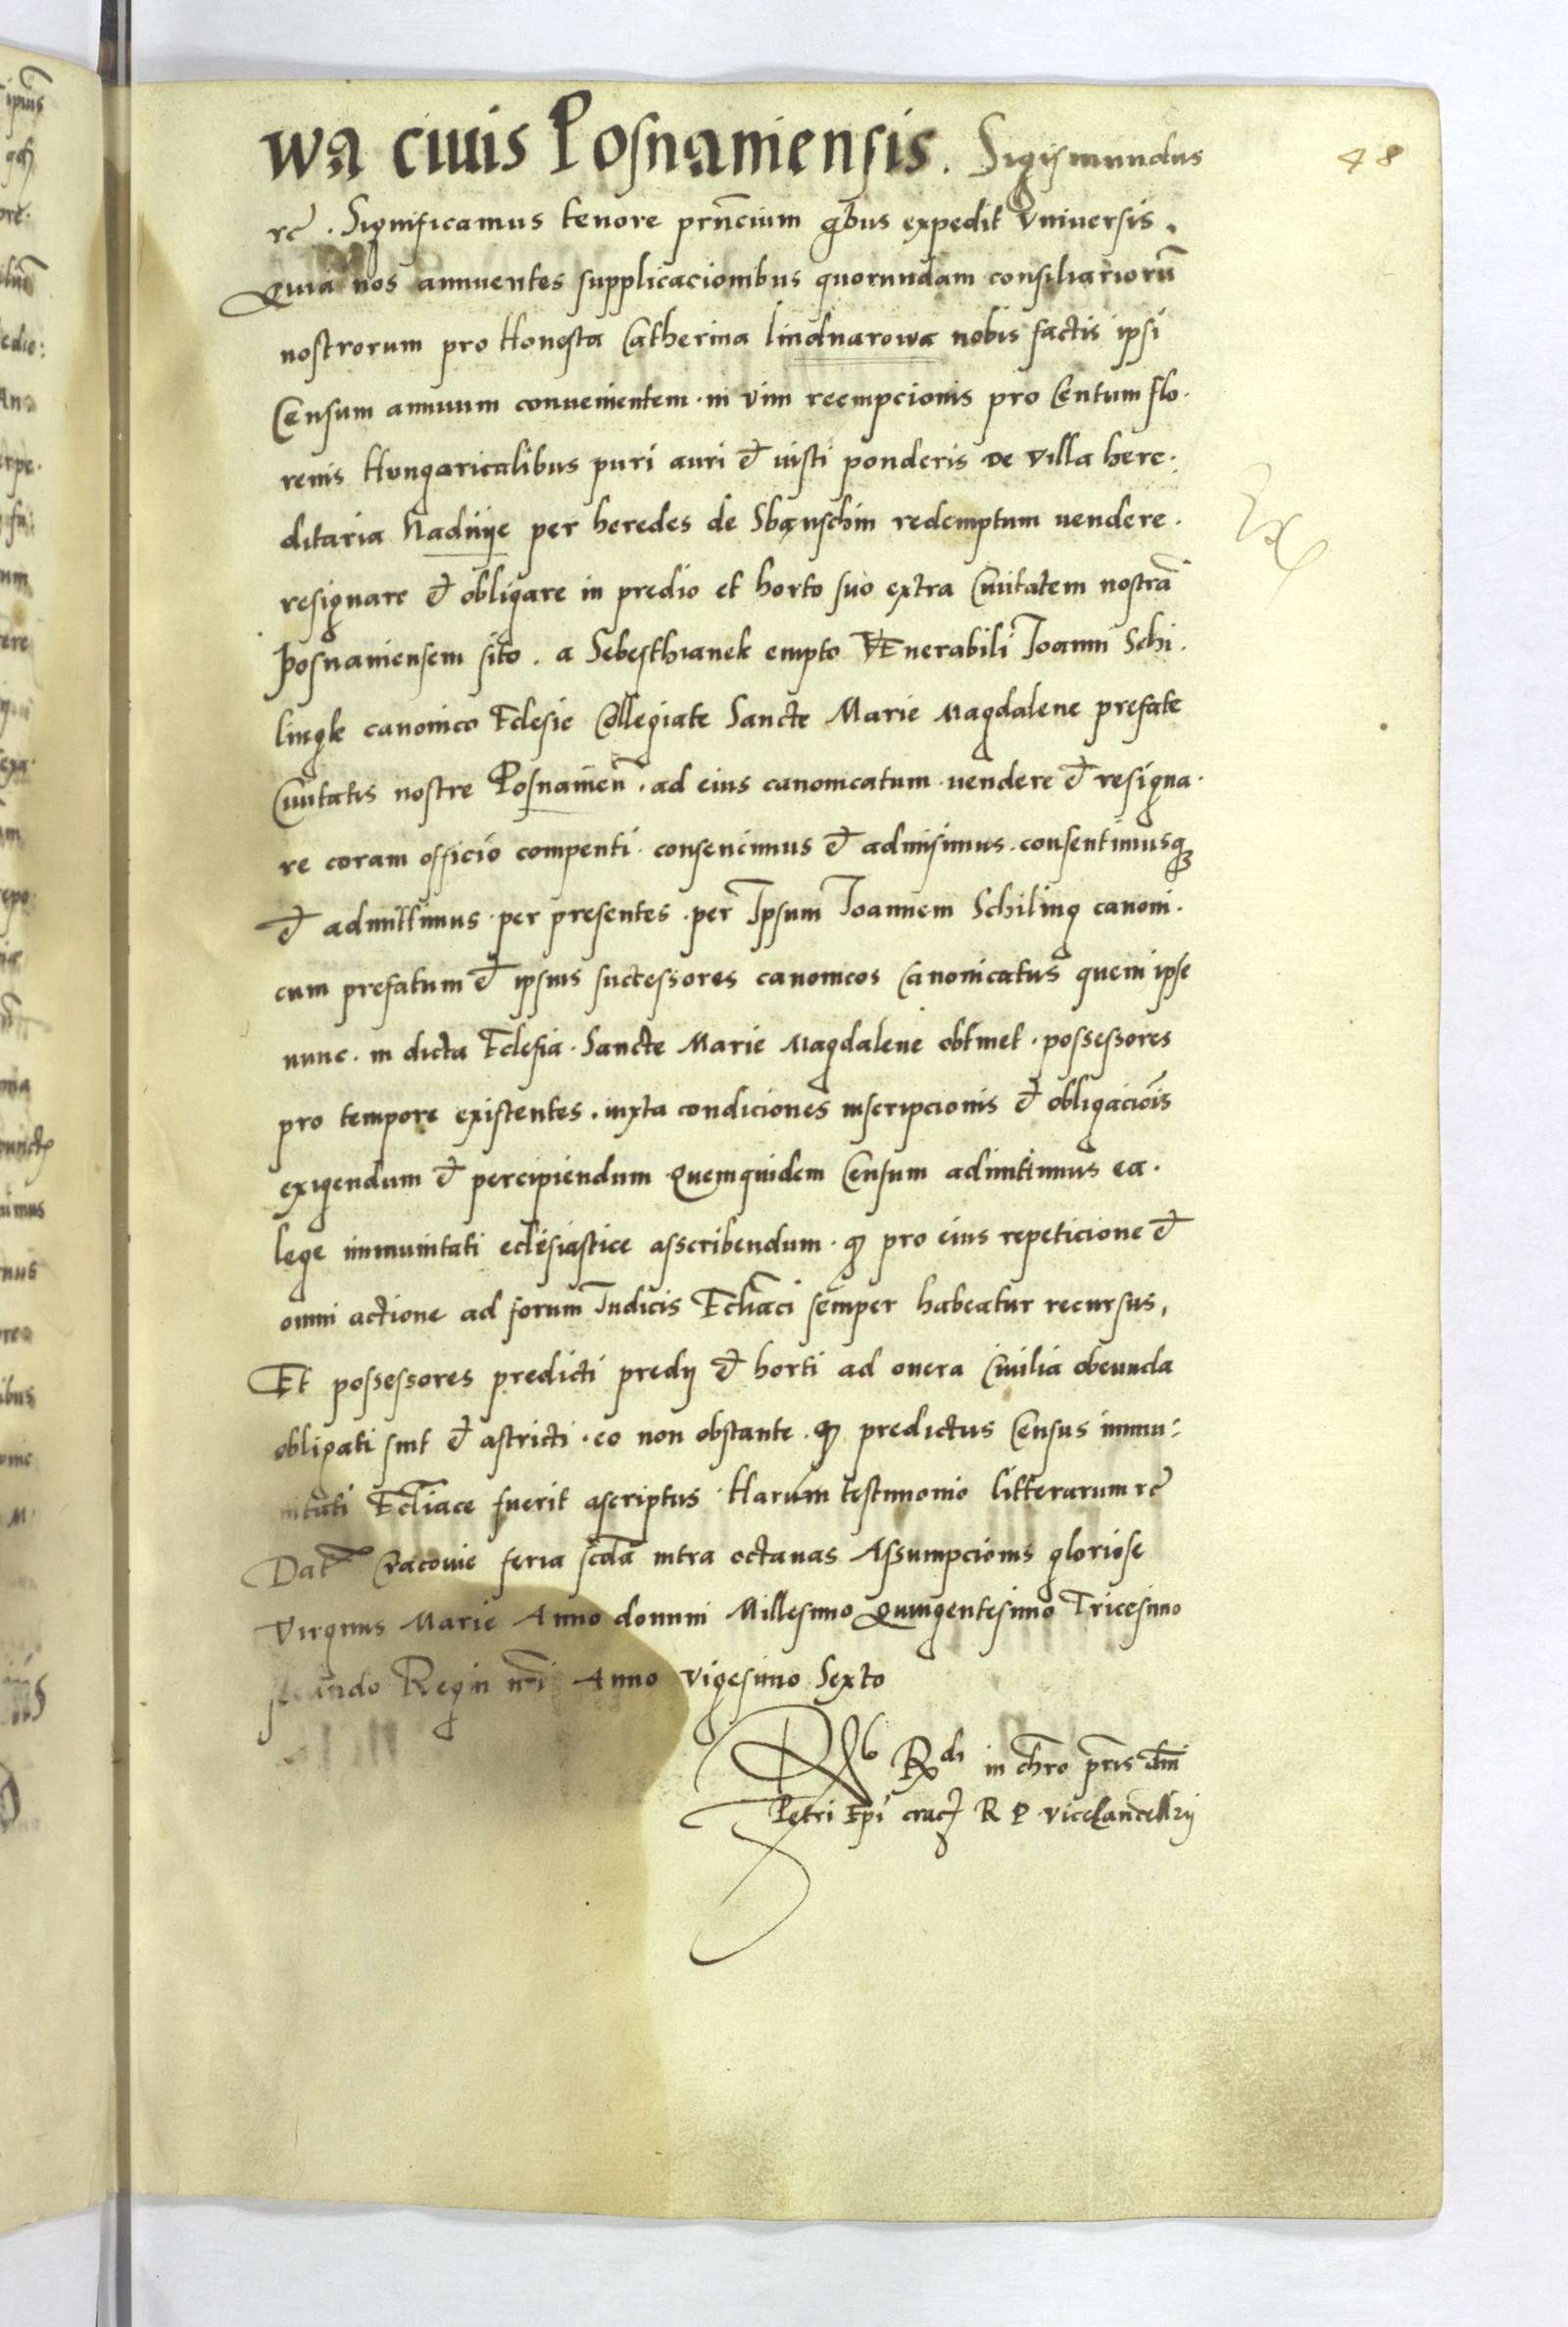 wa ciuis Posnaniensis. Sigismundus
48
rc̃. Significamus tenore prñcium qb̃us expedit Vniuersis.
Quia nos annuentes supplicacionibus quorundam consiliariorũ
nostrorum pro Honesta Catherina lindnarowa nobis factis ipsi
Censum annuum conuenientem. in vim reempcionis pro Centum flo.
renis Hungaricalibus puri auri et iusti ponderis de villa here.
ditaria Nadnije per heredes de Sbąnschin redemptum uendere.
Ex
resignare et obligare in predio et horto suo extra Ciuitatem nostrã
Posnaniensem sito. a Sebesthianek empto VEnerabili Joanni Schi.
lingk canonico Eclesie Collegiate Sancte Marie Magdalene prefate
Ciuitatis nostre Posnanieñ. ad eius canonicatum. uendere et resigna.
re coram officio compenti. consencimus et admisimus. consentimusq3
et admittimus. per presentes. per Ipsum Joannem Schiling canoni.
cum prefatum et ipsius successores canonicos Canonicatus quem ipse
nunc. in dicta Eclesia. Sancte Marie Magdalene obtinet. possessores
pro tempore existentes. iuxta condiciones inscripcionis et obligaciõis
exigendum et percipiendum Quemquidem Censum adimtimus ea.
lege immunitati eclesiastice asscribendum. qz pro eius repeticione et
omni actione ad forum Iudicis Ecl̃iaci semper habeatur recursus,
Et possessores predicti predij et horti ad onera Ciuilia obeunda
obligati sint et astricti. eo non obstante. qz predictus Census immu:
nitati Ecl̃iace fuerit ascriptus. Harum testimonio litterarum rc̃
Dat̃ Cracouie feria scdã intra octauas Assumpcionis gloriose
Virginis Marie Anno domini Millesimo Quingentesimo Tricesimo
secundo Regni nr̃i Anno vigesimo Sexto
Rdi in chr̃o pr̃is dm̃
Petri Epĩ crac̃ R P vicecancellrij